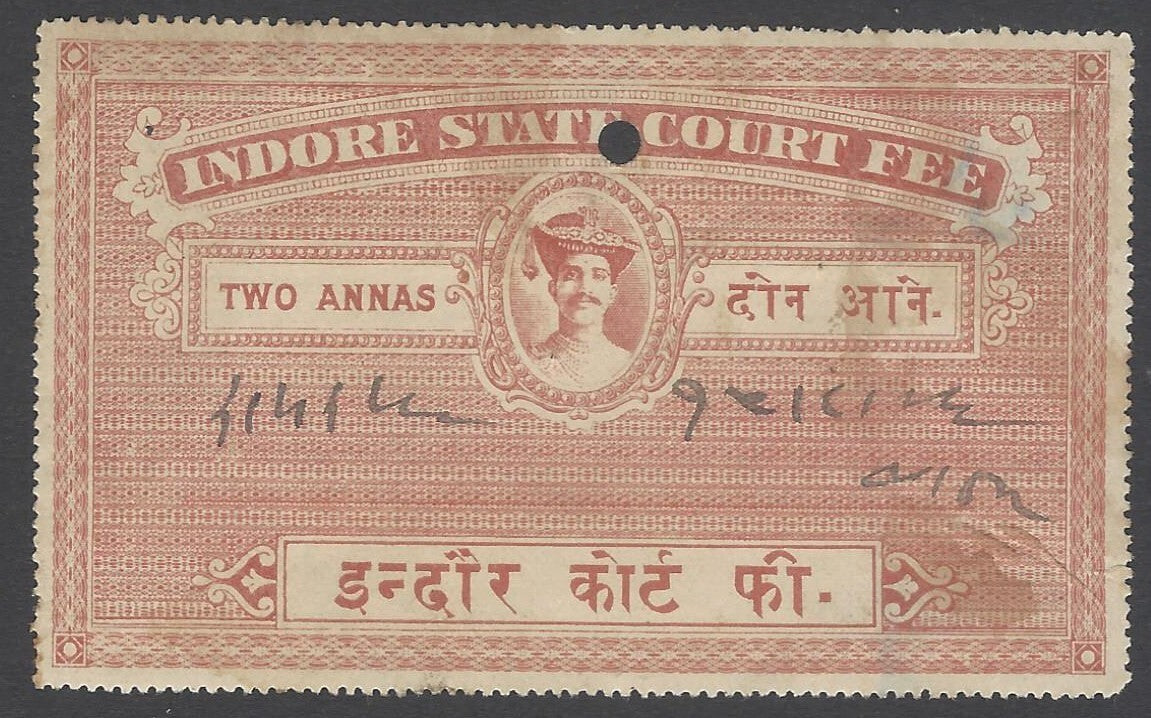 INDORE STATE COURT FEE
TWO ANNAS
दोन आने.
इन्दौर कोर्ट फी.